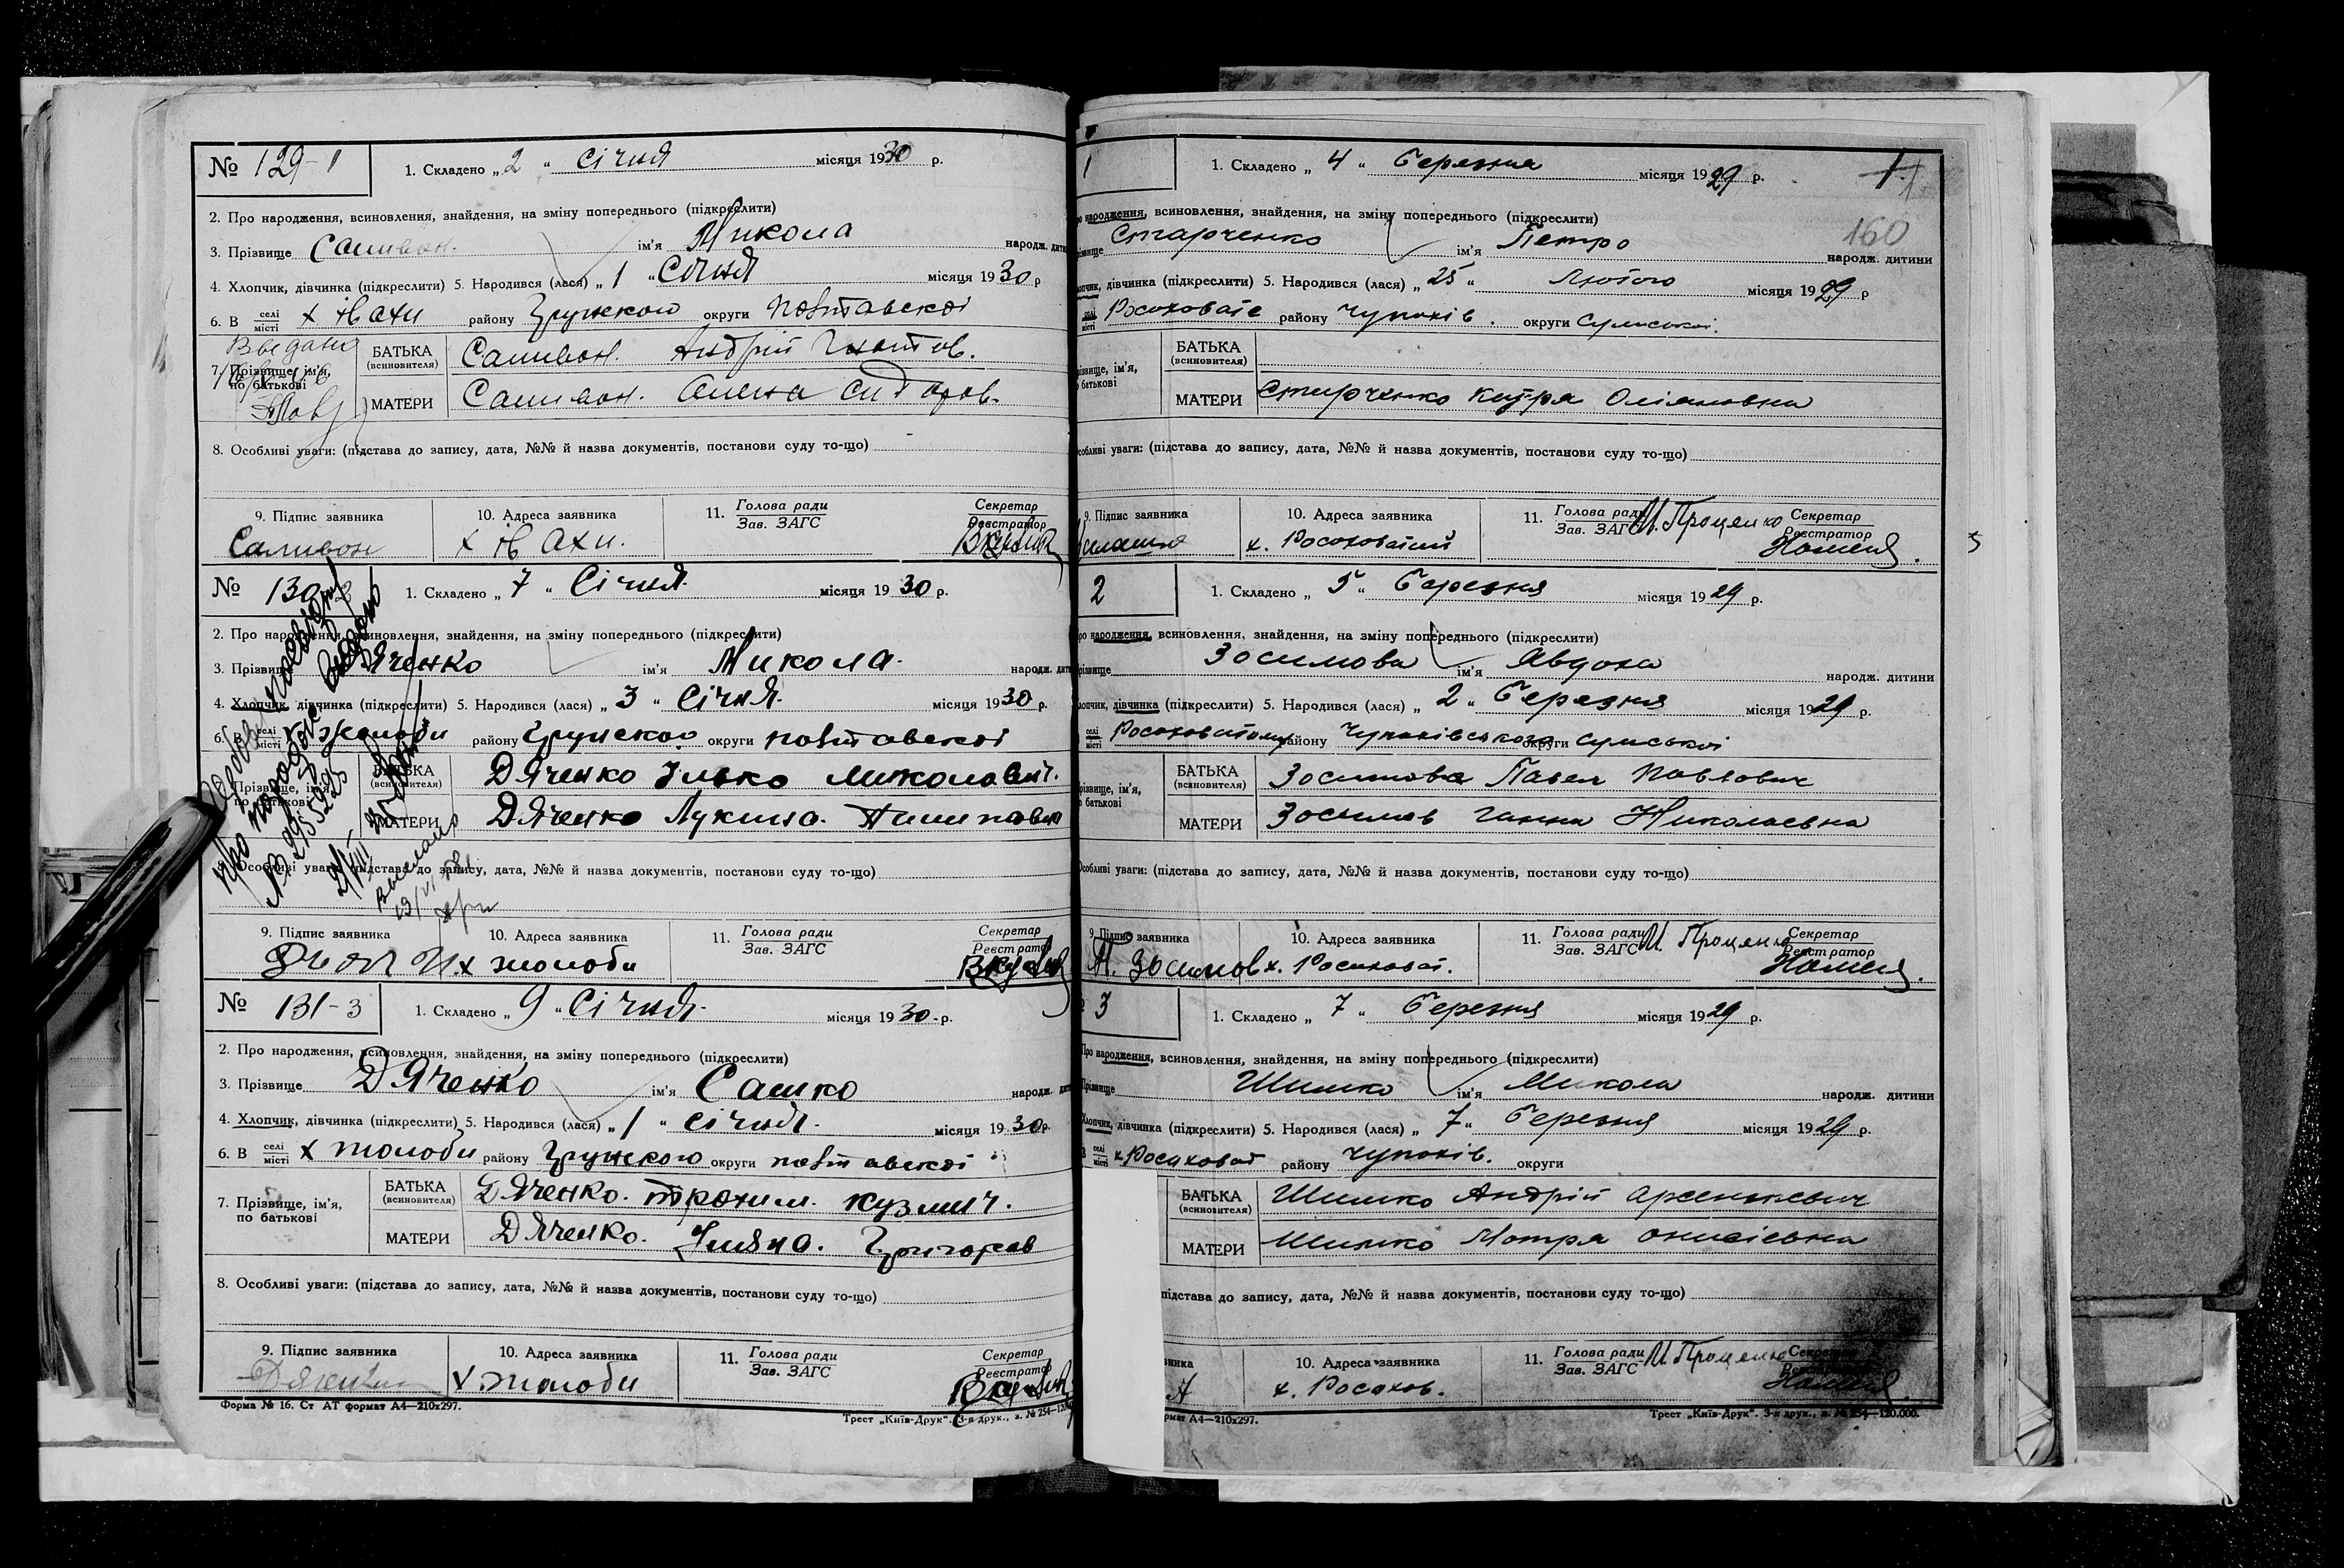 № 129-1
1. Складено „ 2 “ Січня місяця 1930 р.
2. Про народження, всиновлення, знайдення, на зміну попереднього (підкреслити)
3. Прізвище Саливон. ім'я Микола народж. дити
4. Хлопчик, дівчинка (підкреслити) 5. Народився (лася) „ 1 “ Січня місяця 1930 р
6. В селі місті х району Грунского округи полтавскоі
7. Прізвище, ім'я, по батькові
БАТЬКА (всиновителя) Саливон. Андрій
МАТЕРИ Саливон. Олена Сидоров.
8. Особливі уваги: (підстава до запису, дата, №№ й назва документів, постанови суду то-що)
9. Підпис заявника 10. Адреса заявника 11. Голова ради Зав. ЗАГС Секретар Реєстратор
Саливон х
№ 130-2
1. Складено „ 7 “ Січня. місяця 1930 р.
2. Про народження, всиновлення, знайдення, на зміну попереднього (підкреслити)
3. Прізвище Дяченко ім'я Микола. народж. дити
4. Хлопчик, дівчинка (підкреслити) 5. Народився (лася) „ 3 “ Січня. місяця 1930 р.
6. В селі місті х жолоби району Грунского округи полтавскоі
7. Прізвище, ім'я, по батькові
БАТЬКА (всиновителя) Дяченко Илько Миколавич.
МАТЕРИ Дяченко Лукина.
8. Особливі уваги: (підстава до запису, дата, №№ й назва документів, постанови суду то-що)
9. Підпис заявника 10. Адреса заявника 11. Голова ради Зав. ЗАГС Секретар Реєстратор
х жолоби
№ 131-3
1. Складено „ 9 “ Січня. місяця 1930 р.
2. Про народження, всиновлення, знайдення, на зміну попереднього (підкреслити)
3. Прізвище Дяченко ім'я Сашко народж. дит
4. Хлопчик, дівчинка (підкреслити) 5. Народився (лася) „ 1 “ січня. місяця 1930 р.
6. В селі місті х жолоби району Грунского округи полтавскоі
7. Прізвище, ім'я, по батькові
БАТЬКА (всиновителя) Дяченко. трохим. кузмич.
МАТЕРИ Дяченко. Уляна. Григоров
8. Особливі уваги: (підстава до запису, дата, №№ й назва документів, постанови суду то-що)
9. Підпис заявника 10. Адреса заявника 11. Голова ради Зав. ЗАГС Секретар Реєстратор
Дяченко х жолоби
Форма № 16. Ст АТ формат А4—210х297. Трест „Київ-Друк“. 3-я друк., з. № 254—120
1
1. Складено „ 4 “ березня місяця 1929 р.
160
народження, всиновлення, знайдення, на зміну попереднього (підкреслити)
Старченко ім'я Петро народж. дитини
хлопчик, дівчинка (підкреслити) 5. Народився (лася) „ 25 “ Лютого місяця 1929 р
селі місті Росоховате району Чупахів. округи Сумської.
прізвище, ім'я, по батькові
БАТЬКА (всиновителя)
МАТЕРИ Старченко Катря
Особливі уваги: (підстава до запису, дата, №№ й назва документів, постанови суду то-що)
9. Підпис заявника 10. Адреса заявника 11. Голова ради Зав. ЗАГС И. Проценко Секретар Реєстратор
х. Росоховатий
2
1. Складено „ 5 “ березня місяця 1929 р.
народження, всиновлення, знайдення, на зміну попереднього (підкреслити)
Зосимова ім'я Явдоха народж. дитини
хлопчик, дівчинка (підкреслити) 5. Народився (лася) „ 2 “ березня місяця 1929 р.
селі місті Росоховатому району Чупахівського округи Сумської
прізвище, ім'я, по батькові
БАТЬКА (всиновителя) Зосимова Павел Павлович
МАТЕРИ Зосимов Ганна Николаевна
Особливі уваги: (підстава до запису, дата, №№ й назва документів, постанови суду то-що)
9. Підпис заявника 10. Адреса заявника 11. Голова ради Зав. ЗАГС И. Проценко Секретар Реєстратор
Зосимов х. Росоховат.
3
1. Складено „ 7 “ березня місяця 1929 р.
Про народження, всиновлення, знайдення, на зміну попереднього (підкреслити)
Прізвище Шимко ім'я Микола народж. дитини
Хлопчик, дівчинка (підкреслити) 5. Народився (лася) „ 7 “ березня місяця 1929 р.
В селі місті х Росоховат району Чупахів. округи
БАТЬКА (всиновителя) Шимко Андрій Арсентьевич
МАТЕРИ Шимко Мотря Онисіевна
підстава до запису, дата, №№ й назва документів, постанови суду то-що)
10. Адреса заявника 11. Голова ради Зав. ЗАГС И. Проценко Секретар
х. Росохов.
рмат А4—210х297. Трест „Київ-Друк“. 3-я друк., з. № 254—120.000.